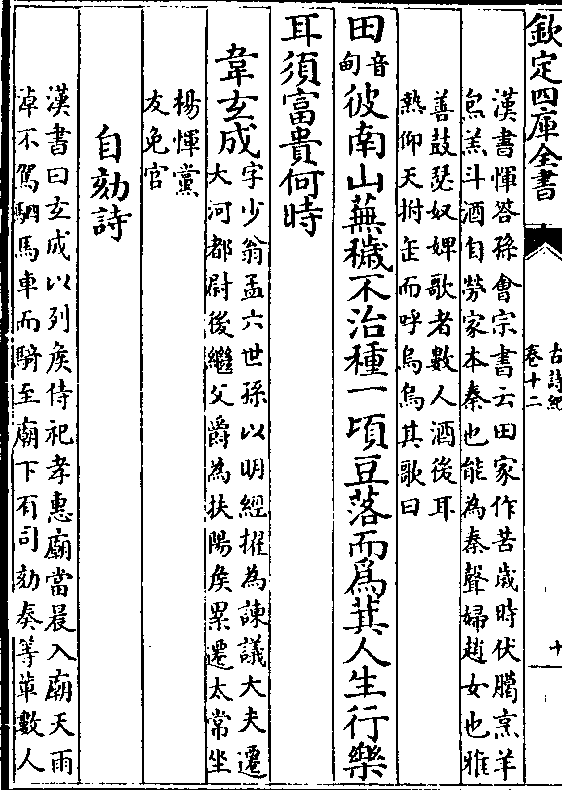 欽定四庫全書
古詩紀
卷十二
十
漢書惲答孫會宗書云田家作苦歲時伏臘烹羊
炰羔斗酒自勞家本秦也能為秦聲婦趙女也雅
善鼓瑟奴婢歌者數人酒後耳
熱仰天拊缶而呼烏烏其歌曰
田音甸彼南山蕪穢不治種一頃豆落而為萁人生行樂
耳須富貴何時
韋玄成字少翁孟六世孫以明經擢為諫議大夫遷
大河都尉後繼父爵為扶陽侯累遷太常坐
楊惲黨
友免官
自劾詩
漢書曰玄成以列侯侍祀孝惠廟當晨入廟天雨
淖不駕駟馬車而騎至廟下有司劾奏等輩數人